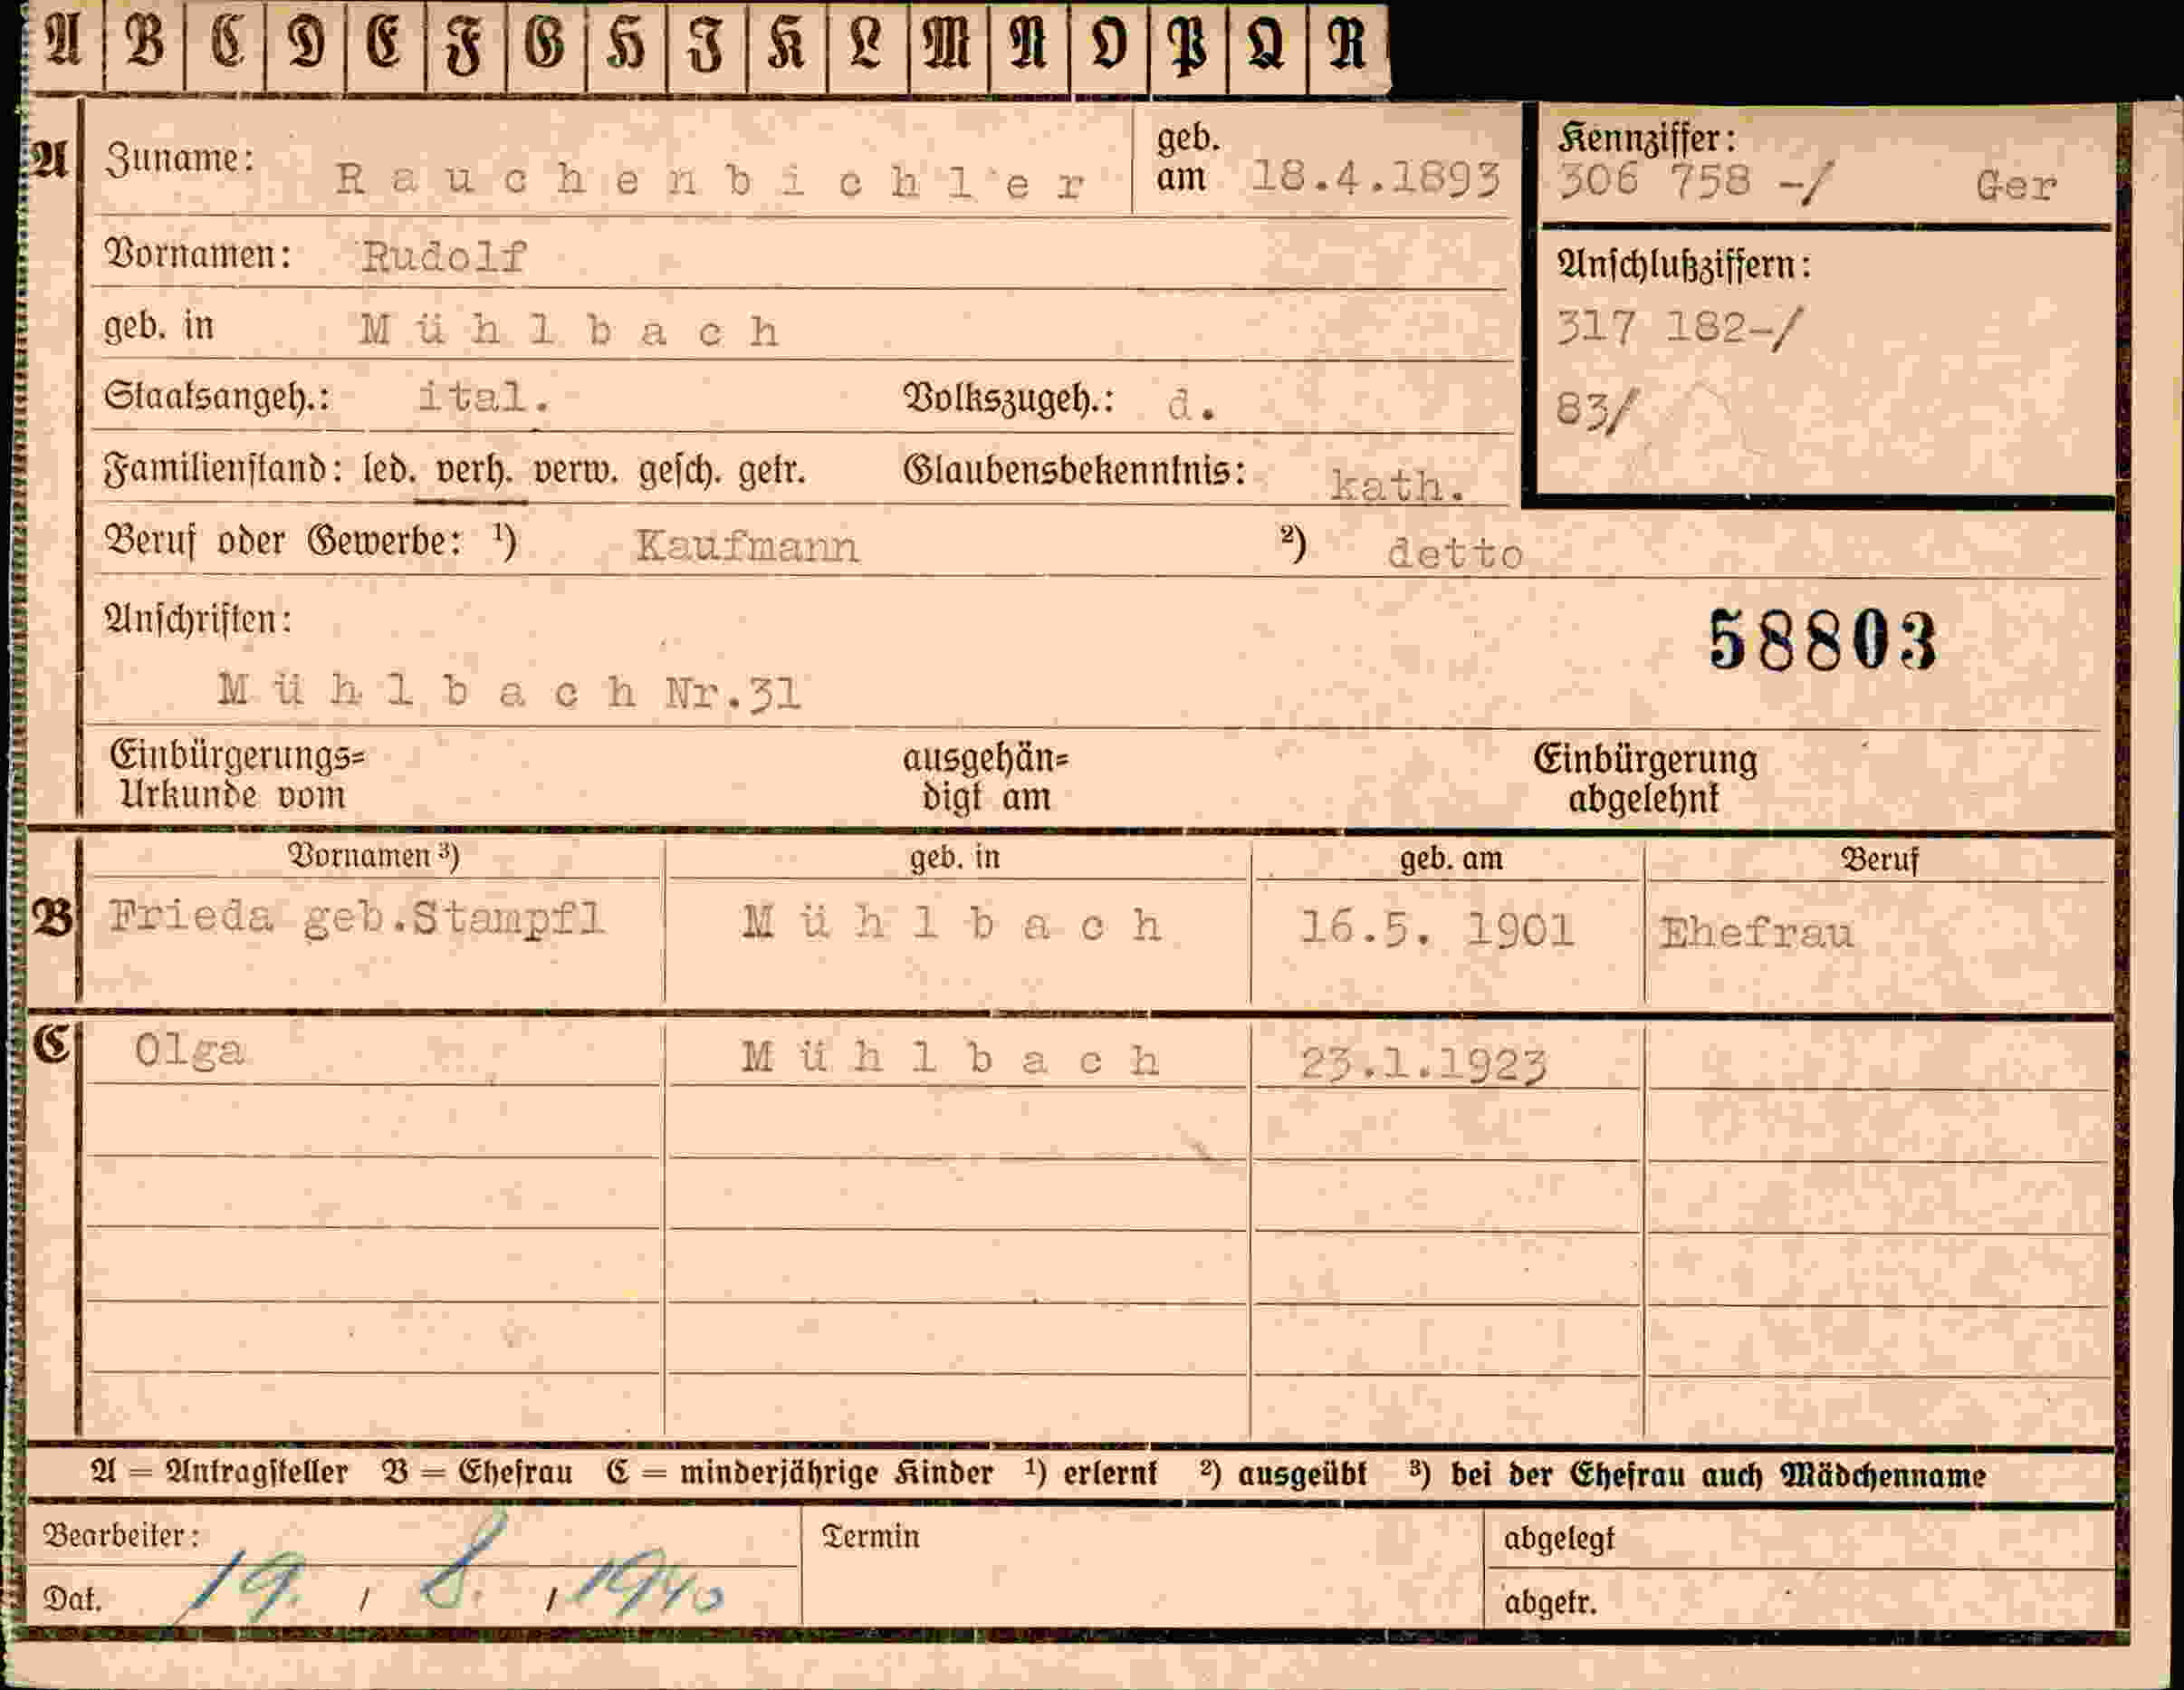 A B C D E F G H J K L M N O P Q R
A Zuname: Rauchenbichler geb. am 18.4.1893 Kennziffer: 306 758 -/ Ger
Vornamen: Rudolf Anschlußziffern:
geb. in Mühlbach 317 182-/
Staatsangeh.: ital. Volkszugeh.: d. 83/
Familienstand: led. verh. verw. gesch. getr. Glaubensbekenntnis: kath.
Beruf oder Gewerbe: ¹) Kaufmann ²) detto
Anschriften: 58803
Mühlbach Nr.31
Einbürgerungs= ausgehän= Einbürgerung
Urkunde vom digt am abgelehnt
Vornamen ³) geb. in geb. am Beruf
B Frieda geb.Stampfl Mühlbach 16.5. 1901 Ehefrau
C Olga Mühlbach 23.1.1923
A = Antragsteller B = Ehefrau C = minderjährige Kinder ¹) erlernt ²) ausgeübt ³) bei der Ehefrau auch Mädchenname
Bearbeiter: Termin abgelegt
Dat. 19. / 8. / 1940 abgetr.